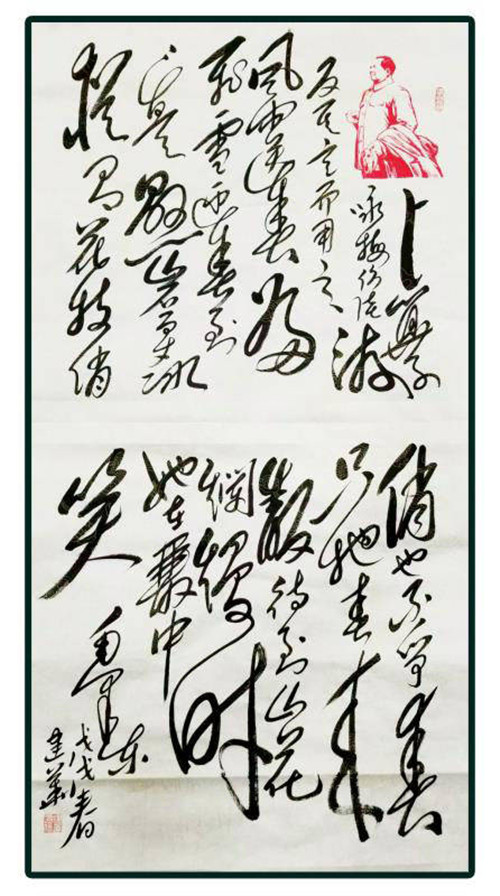 卜算子
咏梅仿陆游
反其意而用之
风雨送春归
飞雪迎春到
已是悬崖百丈冰
犹有花枝俏
俏也不争春
只把春来
报待到山花
爛熳时
她在叢中
笑
毛泽东
戊戌春